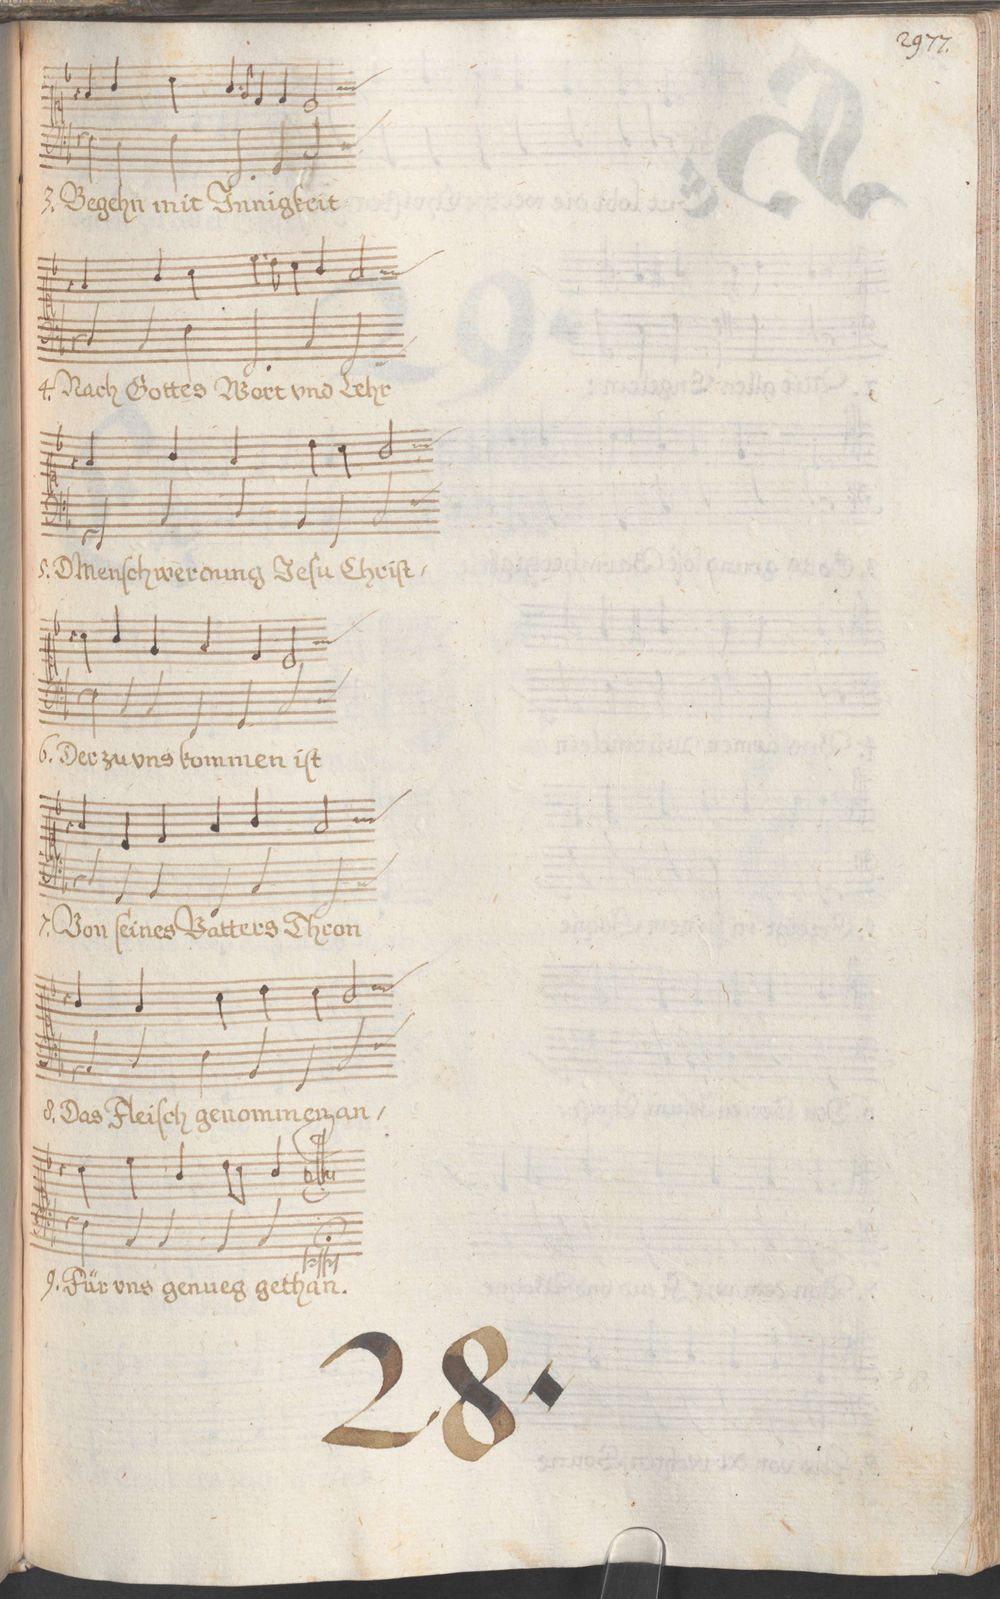 2977.
3. Begehn mit Innigkeit
4. Nach Gottes Wort vnd Lehr
5. D Menschwerdung Jesu Christ,
6. Der zu vns kommen ist
7. Von seines Vatters Thron
8. Das Fleisch genommen an,
9. Für vns genueg gethan.
28.